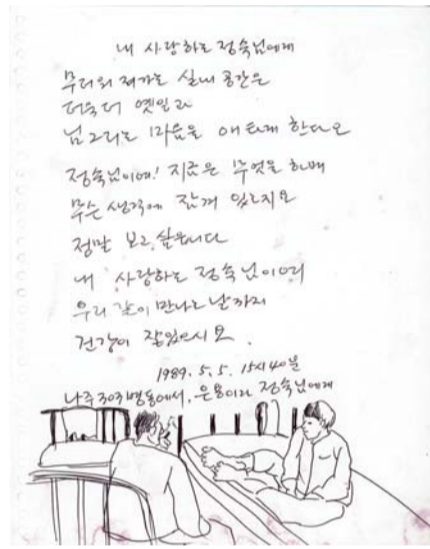 내 사랑하는 정숙님에게
무더위 져가는 실내 공간은
더욱더 옛일과
님그리는 마음을 애타게 한다오
정숙님이여! 지금은 무엇을 하며
무슨 생각에 잠겨 있는지요
정말 보고 싶습니다
내 사랑하는 정숙님이여
우리 같이 만나는 날까지
건강히 잘있으시오.
1989. 5. 5. 15시40분
나주 303병동에서, 은용이라 정숙님에게